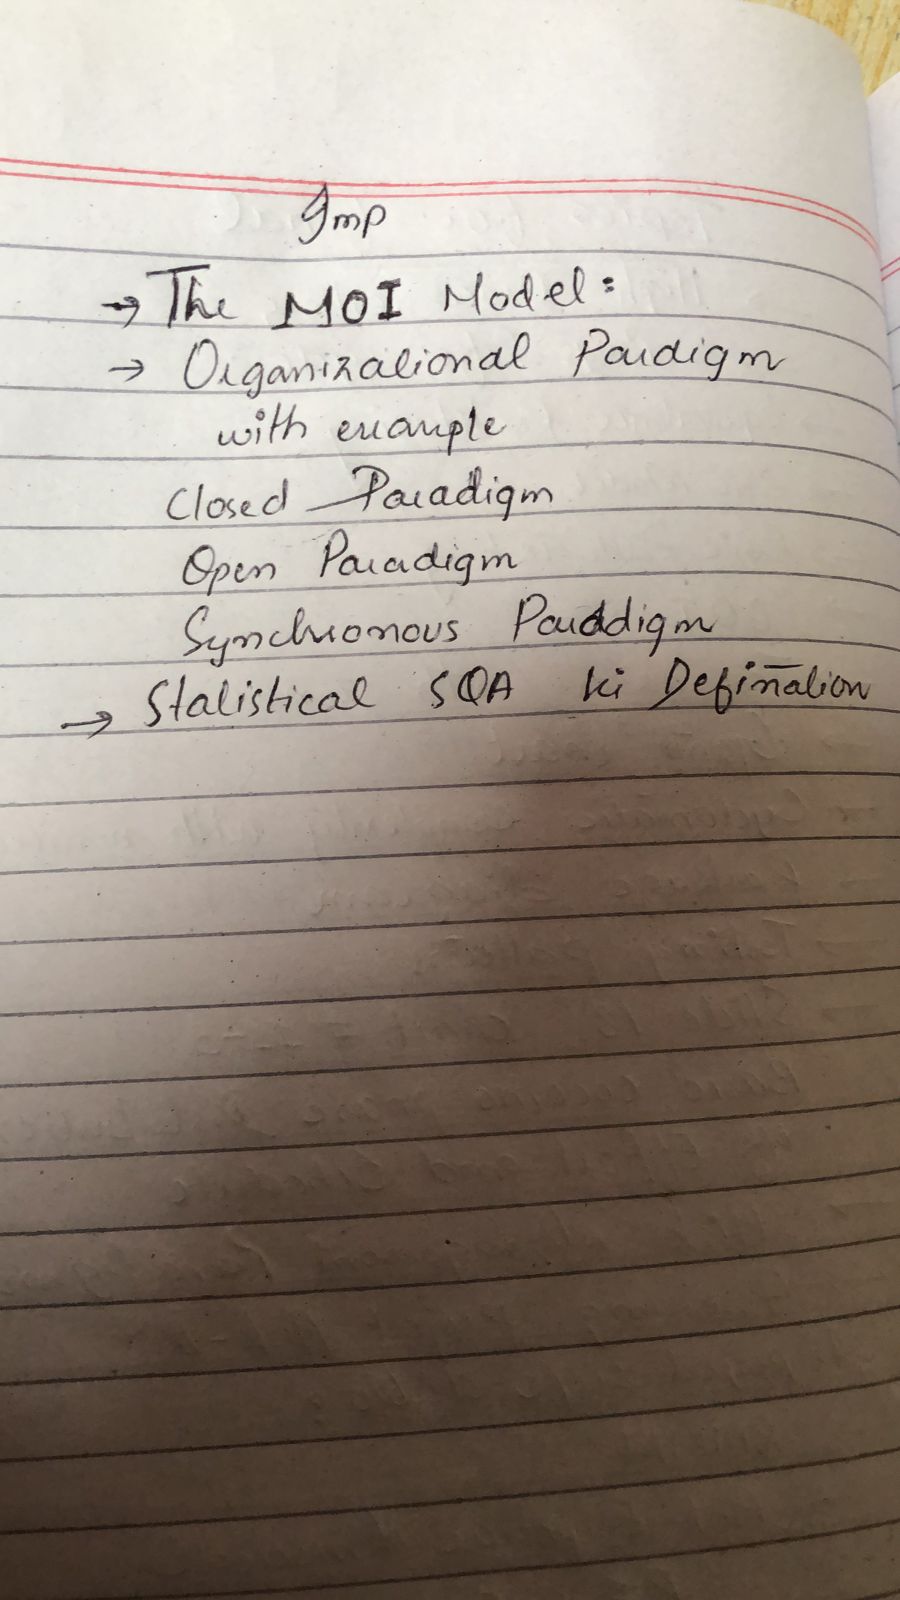 Imp
→ The MOI Model:
→ Organizational Pardigm
with example
Closed Paradigm
Open Paradigm
Synchronous Paraddigm
→ Statistical SQA ki Defination